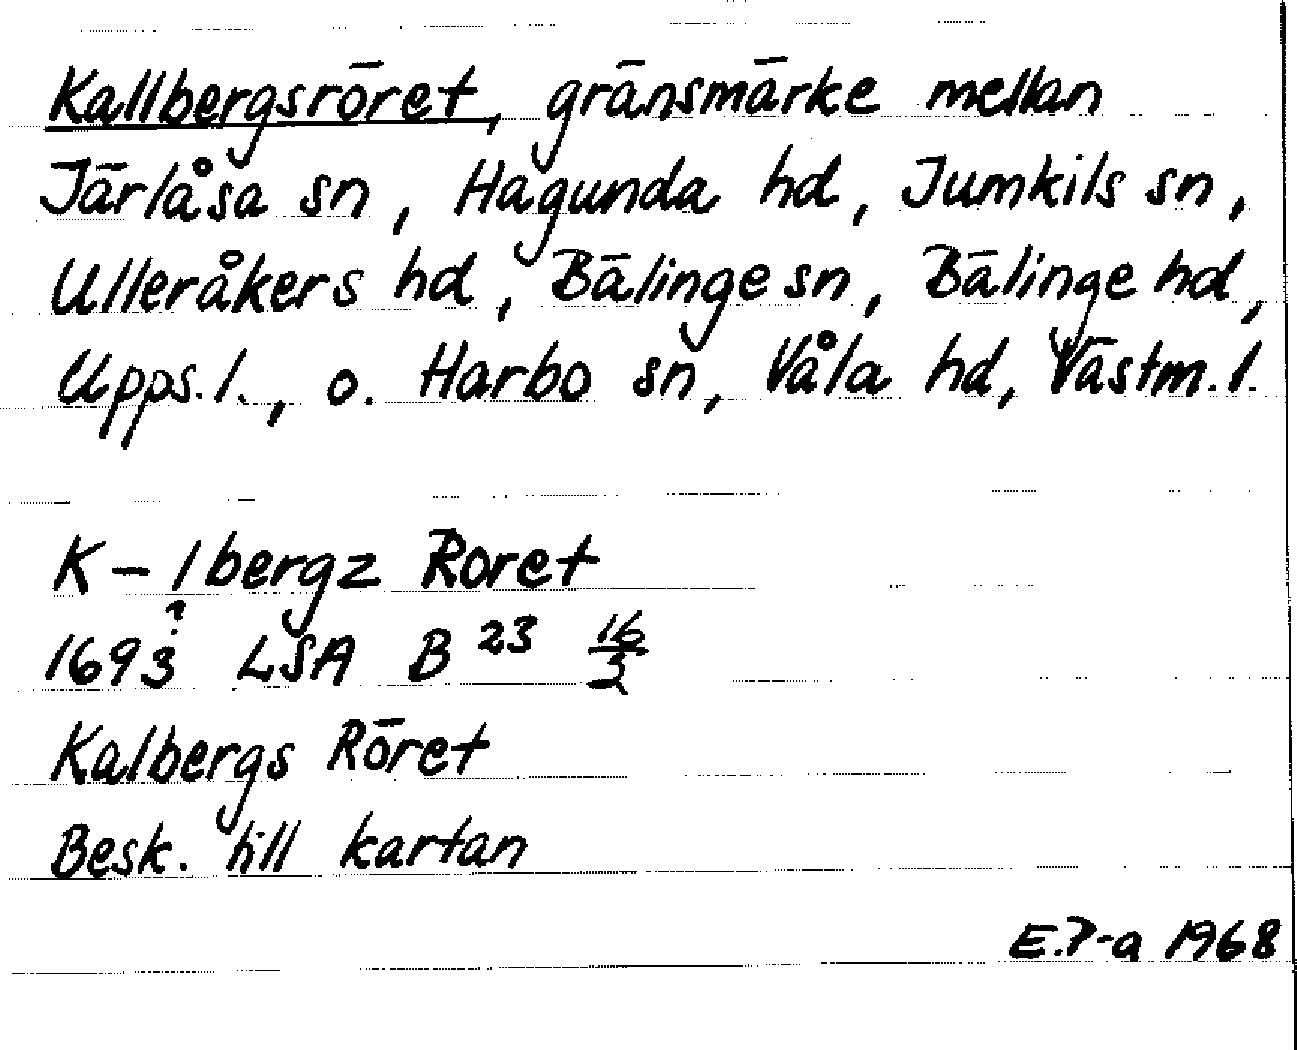 Kallbergsröret, gränsmärke mellan
Järlåsa sn, Hagunda hd, Jumkils sn,
Ulleråkers hd, Bälinge sn, Bälinge hd,
Upps. l., o. Harbo sn, Våla hd, Västm. l.
K-lbergz Röret
1693? LSA B 23 16/3
Kalbergs Röret
Besk. till kartan
E.P-a 1968